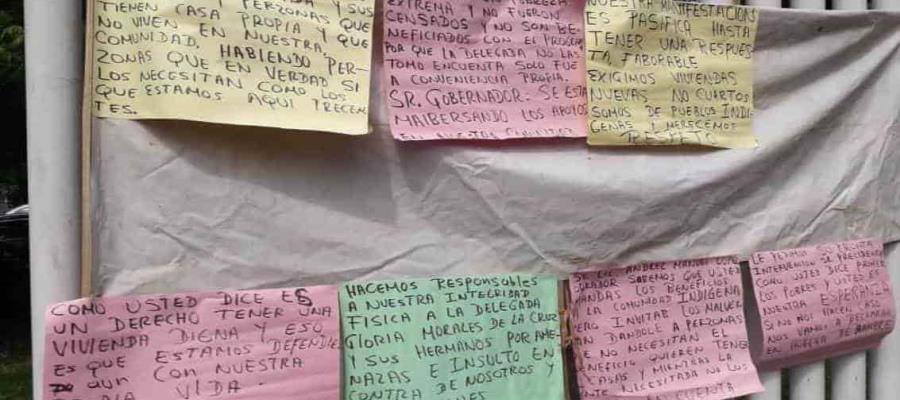 TIENEN CASA PROPIA Y QUE
NO VIVEN EN NUESTRA
COMUNIDAD. HABIENDO PER-
ZONAS QUE EN VERDAD SI
LOS NECESITAN COMO LOS
QUE ESTAMOS AQUI PRECEN
TES.
EXTREMA Y NO FUERON
CENSADOS Y NO SON BE-
NEFICIADOS CON EL PROGRA
POR QUE LA DELEGADA NO LAS
TOMO ENCUENTA SOLO FUE
A CONVENIENCIA PROPIA.
SR. GOBERNADOR. SE ESTA
MAIBERSANDO LOS APOYOS
EN NUESTRA
NUESTRA MANIFESTACION
ES PASIFICA HASTA
TENER UNA RESPUES
TA FABORABLE
EXIGIMOS VIVIENDAS
NUEVAS NO CUARTOS
SOMOS DE PUEBLOS INDI
GENAS Y MERECEMOS
RESPETO
COMO USTED DICE ES
UN DERECHO TENER UNA
VIVIENDA DIGNA Y ESO
ES QUE ESTAMOS DEFENDIE
aun CON NUESTRA
VIDA.
HACEMOS RESPONSABLES
A NUESTRA INTEGRIDAD
FISICA A LA DELEGADA
GLORIA MORALES DE LA CRUZ
Y SUS HERMANOS POR AME-
NAZAS E INSULTO EN
CONTRA DE NOSOTROS Y
SR LIC. ANDREZ MANUEL
SABEMOS QUE USTED
MANDAS LOS BENEFICIOS
LA COMUNIDAD INDIGENA
DANDOLE A PERSONAS
E NO NECESITAN EL
NEFICIO QUIEREN TENER
CASAS Y MIENTRAS LA
NECESITADA NO LOS
CUENTA
LE PEDIMO SU PRONTA
INTERVENCION SR PRECIDENTE
COMO USTED DICE PRIMER
LOS POBRES Y USTED ES
NUESTRA ESPERANZA
SI NO NOS HACEN CASO
NOS VAMOS A DECLARAR
EN HUELGA DE HAMBRE